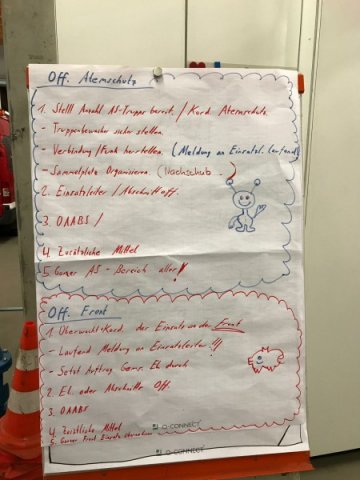 Off. Atemschutz
1. Stellt Anzahl AS-Trupps bereit. / Kord. Atemschutz.
- Truppenbewacher sicher stellen.
- Verbindung / Funk herstellen. (Meldung an Einsatzl. laufend)
- Sammelplatz Organisieren (Nachschub.)
2. Einsatzleiter / Abschnittoff.
3. DAABS /
4. Zusätzliche Mittel
5. Ganzer AS - Bereich alles!
Off. Front
1. Überwacht Kord. der Einsatz an der Front
- Laufend Meldung an Einsatzleiter!!!
- Setzt Auftrag Gem. EL durch
2. EL oder Abschnitts Off.
3. DAABS
4. Zusätzliche Mittel
5. Ganzer Front Einsatz
Q-CONNECT
Q-CONNECT